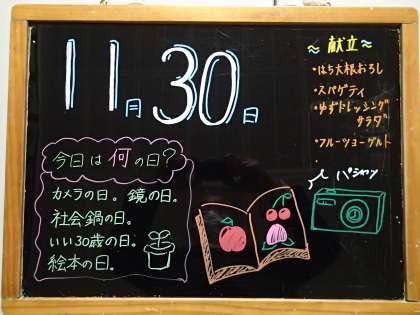 11月30日
～献立～
・はち大根おろし
・スパゲティ
・ゆずドレッシング
サラダ
・フルーツヨーグルト
今日は何の日?
カメラの日。鏡の日。
社会鍋の日。
いい30歳の日。
絵本の日。
パシャッ